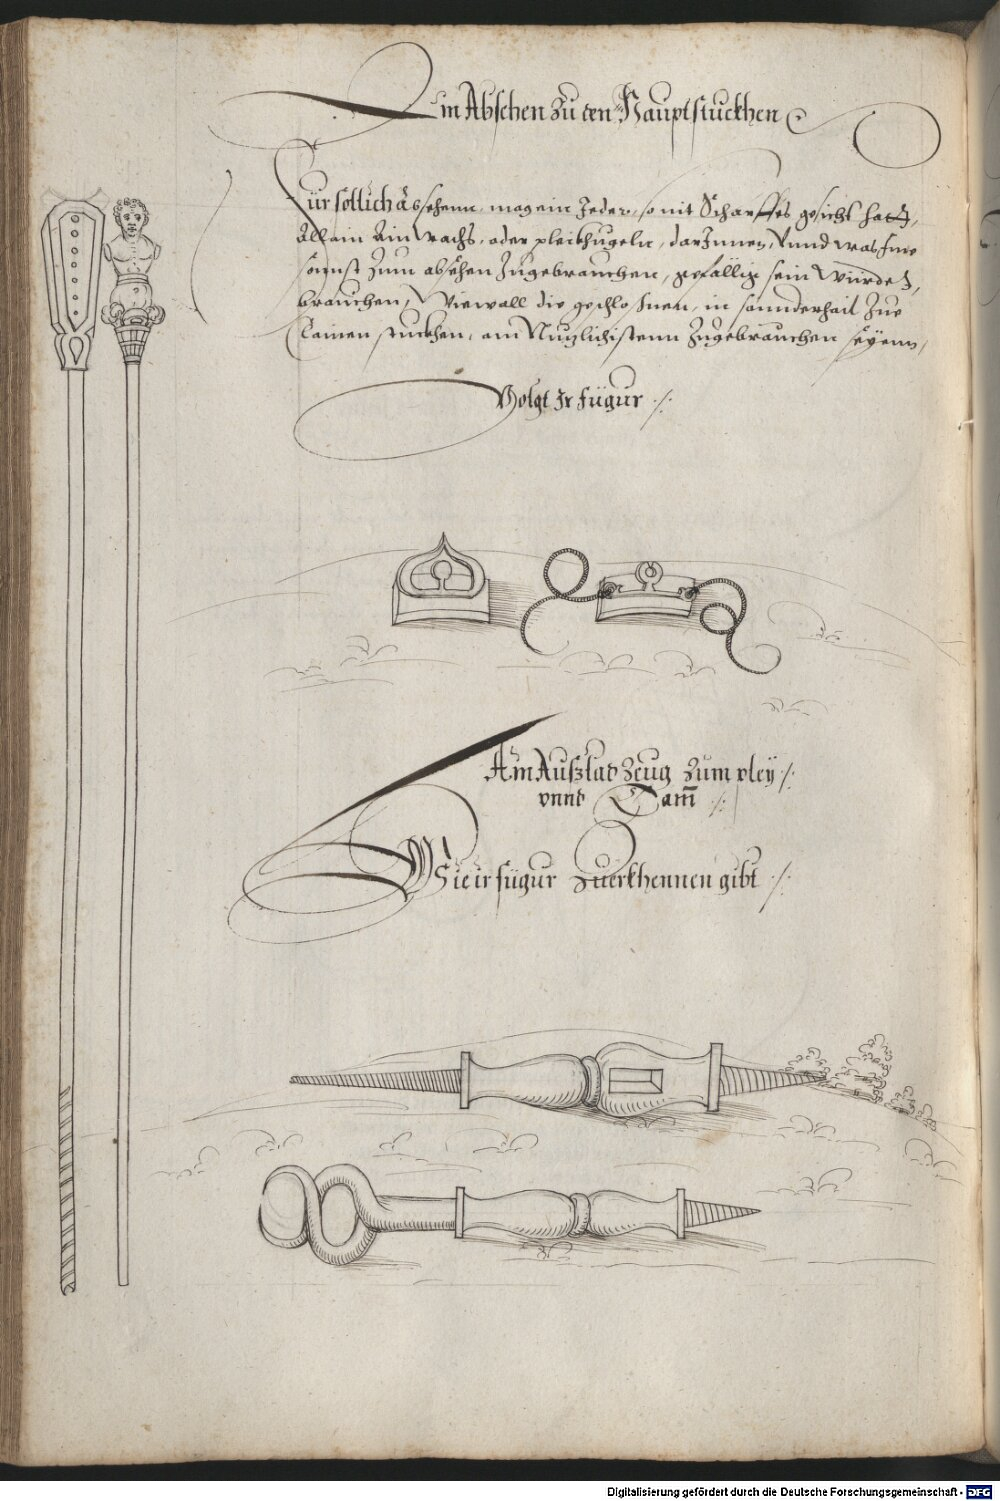 Ain Absehen zu den Hauptstuckhen
Für sollich abssehenn, mag ein Jeder, so nit Scharffes gesicht hatt,
Allain Ain Wachs, oder pleikhugeln, darJnnen, Vnnd was Jme
sonnst zum absehen zugebrauchen, gefällig sein würdet,
brauchen, Wiewall die geschlossnen, in sonnderhait zue
Clainen stuckhen, am Nuzlichistenn zugebrauchen seyenn,
Volgt Jr figur
Ain Außlad Zeug zum pley
vnnd Dam̅
Wie ir figur zuerkhennen gibt
Digitalisierung gefördert durch die Deutsche Forschungsgemeinschaft - DFG